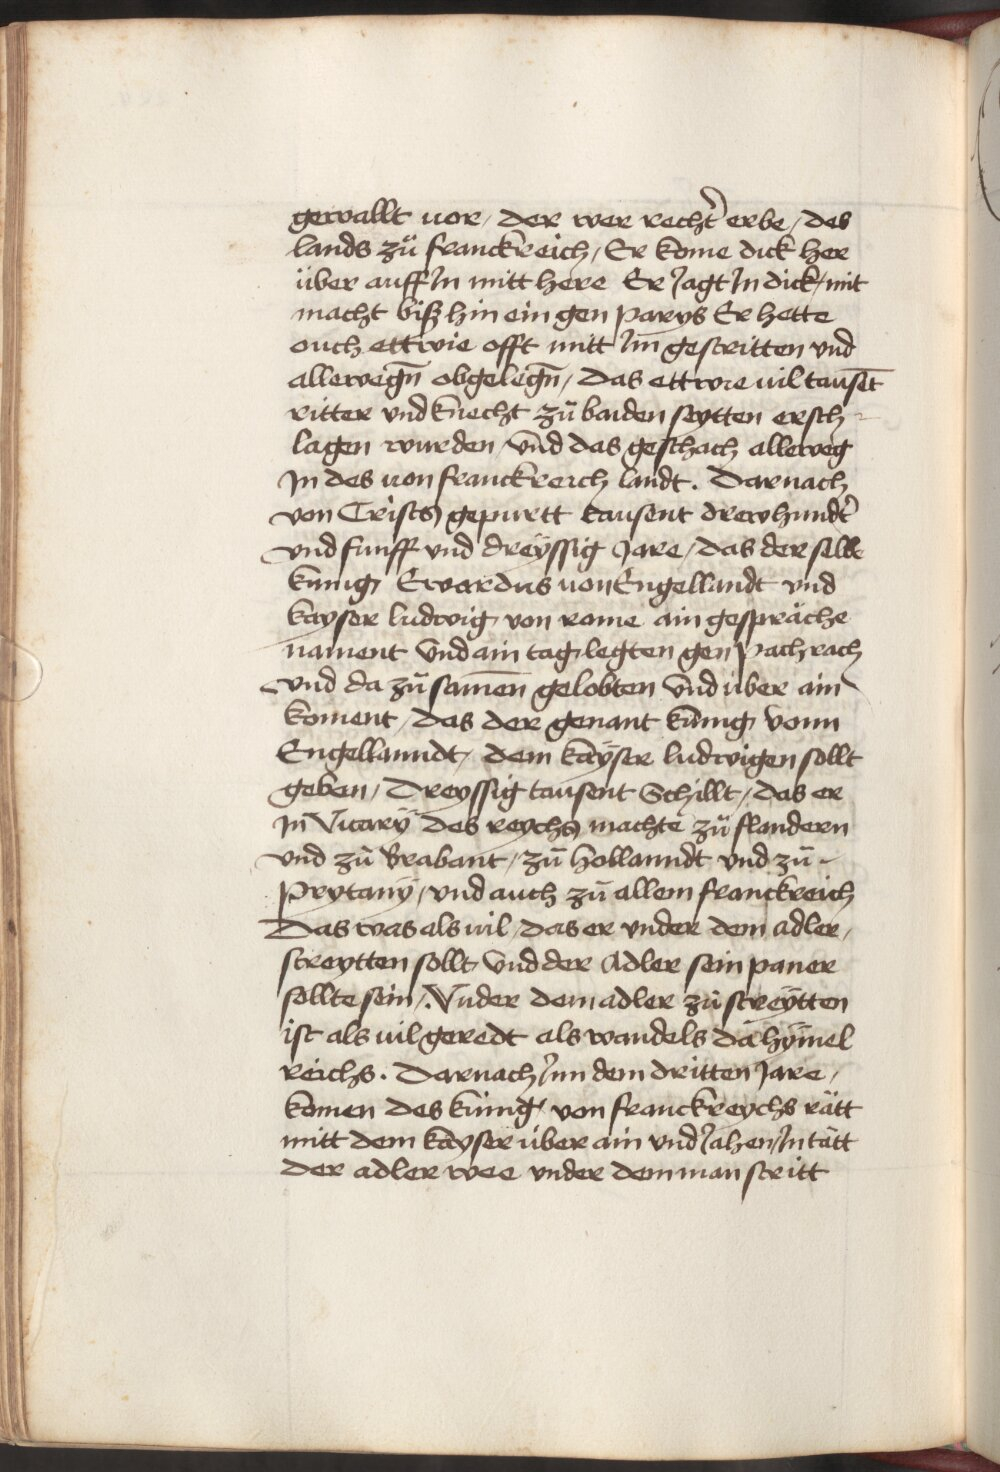 gewallt uor / der wer recht̛ erbe / des
lands zů franckreich / Er kome dick her
über auff In mitt here Er Jagt In dick / mit
macht bisz hin ein gen parys Er hette
ouch ettwie offt mitt Im̄ gestritten vnd
allewegn̄ obgelegn̄ / das ettwie uil tausēt
ritter vnd knecht zů baiden seytten ersch-
lagen wurden / vnd das geschach alleweg
In des uon franckreich landt . Darnach
von Crists gepurtt tausent drewhundt̛
vnd funff vnd dreÿssig Jare / das der selbe
kunig Ewardus uon Engellandt vnd
kayser ludwig von rome ain gespräche
nament vnd ain tag legten gen pachrach
vnd da zů samen̄ gelobten vnd über ain
koment / das der genant kunig vonn
Engellanndt / dem kaÿser ludwigen sollt
geben / Dreyssig tausent Schillt / das er
In̄ Vicarÿ des reychs machte zů flandern
vnd zů Brabant / zů hollanndt vnd zů -
Prytanÿ / vnd auch zů allem franckreich
Das was als uil / das er vnder dem adler /
streytten sollt vnd der Adler sein paner
sollte sein /. Vnder dem adler zů streÿtten
ist als uil geredt als wandels da hÿmel
reichs . Darnach Inn dem dritten Jare /
komen des kunig von franckreychs rätt
mitt dem kayser über ain vnd Jahen / In tätt
der adler wee vnder dem man stritt